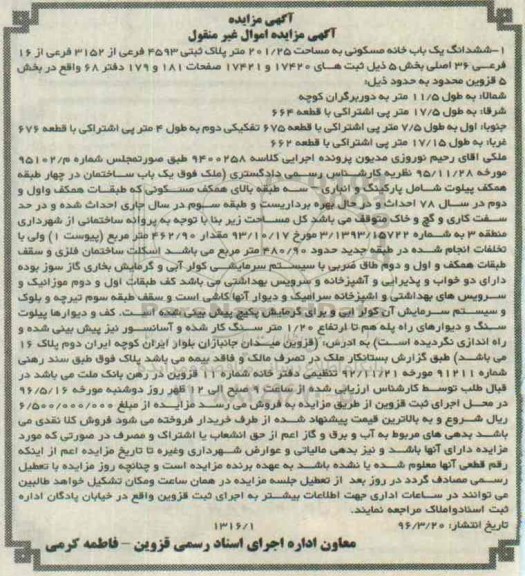 آگهی مزایده
آگهی مزایده اموال غیر منقول
۱-ششدانگ یک باب خانه مسکونی به مساحت ۲۰۱/۲۵ متر پلاک ثبتی ۴۵۹۳ فرعی از ۳۱۵۲ فرعی از ۱۶
فرعی ۳۶ اصلی بخش ۵ ذیل ثبت های ۱۷۴۲۰ و ۱۷۴۲۱ صفحات ۱۸۱ و ۱۷۹ دفتر ۶۸ واقع در بخش
۵ قزوین محدود به حدود ذیل:
شمالا: به طول ۱۱/۵ متر به دوربرگران کوچه
شرقا: به طول ۱۷/۵ متر پی اشتراکی با قطعه ۶۶۴
جنوبا: اول به طول ۷/۵ متر پی اشتراکی با قطعه ۶۷۵ تفکیکی دوم به طول ۴ متر پی اشتراکی با قطعه ۶۷۶
غربا: به طول ۱۷/۱۵ متر پی اشتراکی با قطعه ۶۶۲
ملکی آقای رحیم نوروزی مدیون پرونده اجرایی کلاسه ۹۴۰۰۲۵۸ طبق صورتمجلس شماره م/۹۵۱۰۲
مورخه ۹۵/۱۱/۲۸ نظریه کارشناس رسمی دادگستری (ملک فوق یک باب ساختمان در چهار طبقه
همکف پیلوت شامل پارکینگ و انباری - سه طبقه بالای همکف مسکونی که طبقات همکف واول و
دوم در سال ۷۸ احداث و درحال بهره برداریست و طبقه سوم در سال جاری احداث شده و در حد
سفت کاری و گچ و خاک متوقف می باشد کل مساحت زیر بنا با توجه به پروانه ساختمانی از شهرداری
منطقه ۳ به شماره ۳/۱۳۹۳/۱۵۷۲۲ مورخ ۹۳/۱۰/۱۷ مقدار ۴۶۲/۹۰ متر مربع (پیوست ۱) ولی با
تخلفات انجام شده در طبقه جدید حدود ۴۸۰/۹۰ متر مربع می باشد اسکلت ساختمان فلزی و سقف
طبقات همکف و اول و دوم طاق ضربی با سیستم سرمایشی کولر آبی و گرمایش بخاری گاز سوز بوده
دارای دو خواب و پذیرایی و آشپزخانه و سرویس بهداشتی می باشد کف طبقات اول و دوم موزائیک و
سرویس های بهداشتی و اشپزخانه سرامیک و دیوار آنها کاشی است و سقف طبقه سوم تیرچه و بلوک
و سیستم سرمایش آن کولر ابی و برای گرمایش پکیج پیش بینی شده است. کف و دیوارها پیلوت
سنگ و دیوارهای راه پله هم تا ارتفاع ۱/۲۰ متر سنگ کار شده و آسانسور نیز پیش بینی شده و
راه اندازی نگردیده است) به ادرس: (قزوین میدان جانبازان بلوار ایران کوچه ایران دوم پلاک ۱۶
می باشد) طبق گزارش بستانکار ملک در تصرف مالک و فاقد بیمه می باشد پلاک فوق طبق سند رهنی
۹۱۲۱۱ شماره مورخه ۹۲/۱۱/۲۱ تنظیمی دفتر خانه شماره ۱۱ قزوین در رهن بانک ملت می باشد در
قبال طلب توسط کارشناس ارزیابی شده از ساعت ۹ صبح الی ۱۲ ظهر روز دوشنبه مورخه ۹۶/۵/۱۶
در محل اجرای ثبت قزوین از طریق مزایده به فروش می رسد مزایده از مبلغ ۶/۵۰۰/۰۰۰/۰۰۰
ریال شروع و به بالاترین قیمت پیشنهاد شده از طرف خریدار فروخته می شود فروش کلا نقدی می
باشد بدهی های مربوط به آب و برق و گاز اعم از حق انشعاب یا اشتراک و مصرف در صورتی که مورد
مزایده دارای آنها باشد و نیز بدهی مالیاتی و عوارض شهرداری وغیره تا تاریخ مزایده اعم از اینکه
رقم قطعی آنها معلوم شده یا نشده باشد به عهده برنده مزایده است و چنانچه روز مزایده با تعطیل
رسمی مصادف گردد در روز بعد از تعطیل جلسه مزایده در همان ساعت ومکان تشکیل خواهد طالبین
می توانند در ساعات اداری جهت اطلاعات بیشتر به اجرای ثبت قزوین واقع در خیابان پادگان اداره
ثبت اسنادواملاک مراجعه نمایند.
تاریخ انتشار: ۹۶/۳/۲۰ ۱۳۱۶/۱
معاون اداره اجرای اسناد رسمی قزوین - فاطمه کرمی